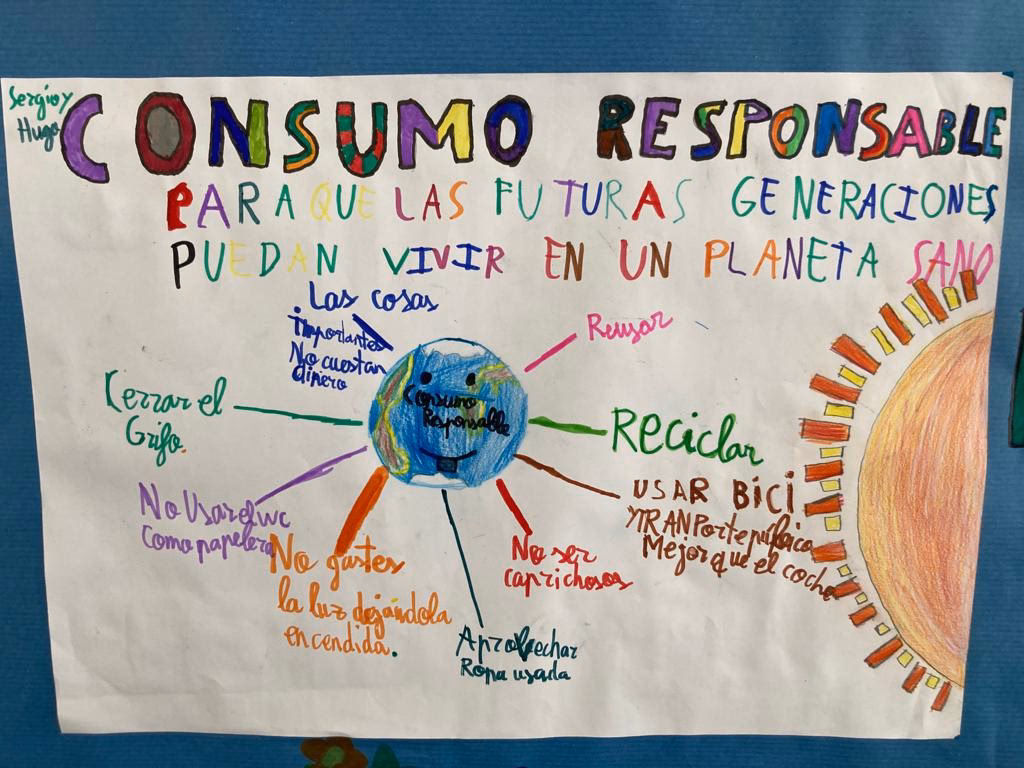 Sergio y
Hugo
CONSUMO RESPONSABLE
PARA QUE LAS FUTURAS GENERACIONES
PUEDAN VIVIR EN UN PLANETA SANO
Las cosas
importantes
No cuestan
dinero
Reusar
Consumo
Responsable
Cerrar el
Grifo.
Reciclar
No Usar el wc
Como papelera
USAR BICI
Y TRANPorte público
Mejor que el coche
No gastes
la luz dejándola
encendida.
No ser
caprichosos
Aprovechar
Ropa usada